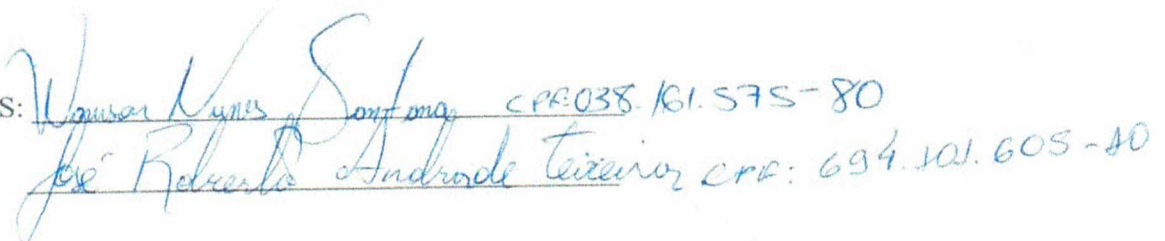 S: Wanison Nunes Santana CPF:038.161.575-80
José Roberto Andrade Teixeira CPF: 694.101.605-10